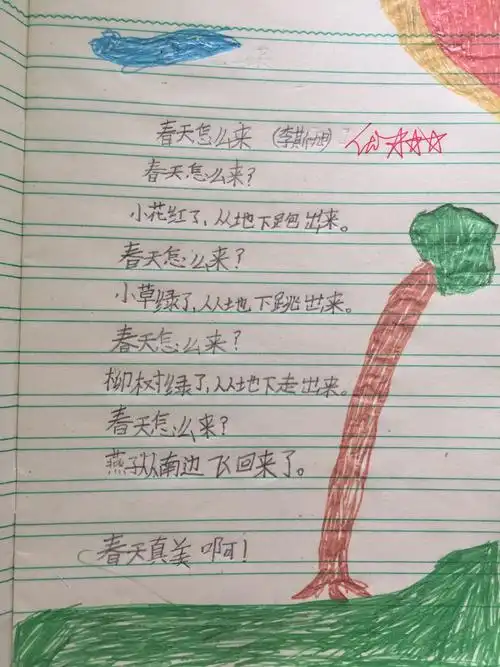 春天怎么来 (李斯旭)
春天怎么来?
小花红了,从地下跑出来。
春天怎么来?
小草绿了,从地下跳出来。
春天怎么来?
柳树绿了,从地下走出来。
春天怎么来?
燕子从南边飞回来了。
春天真美啊!